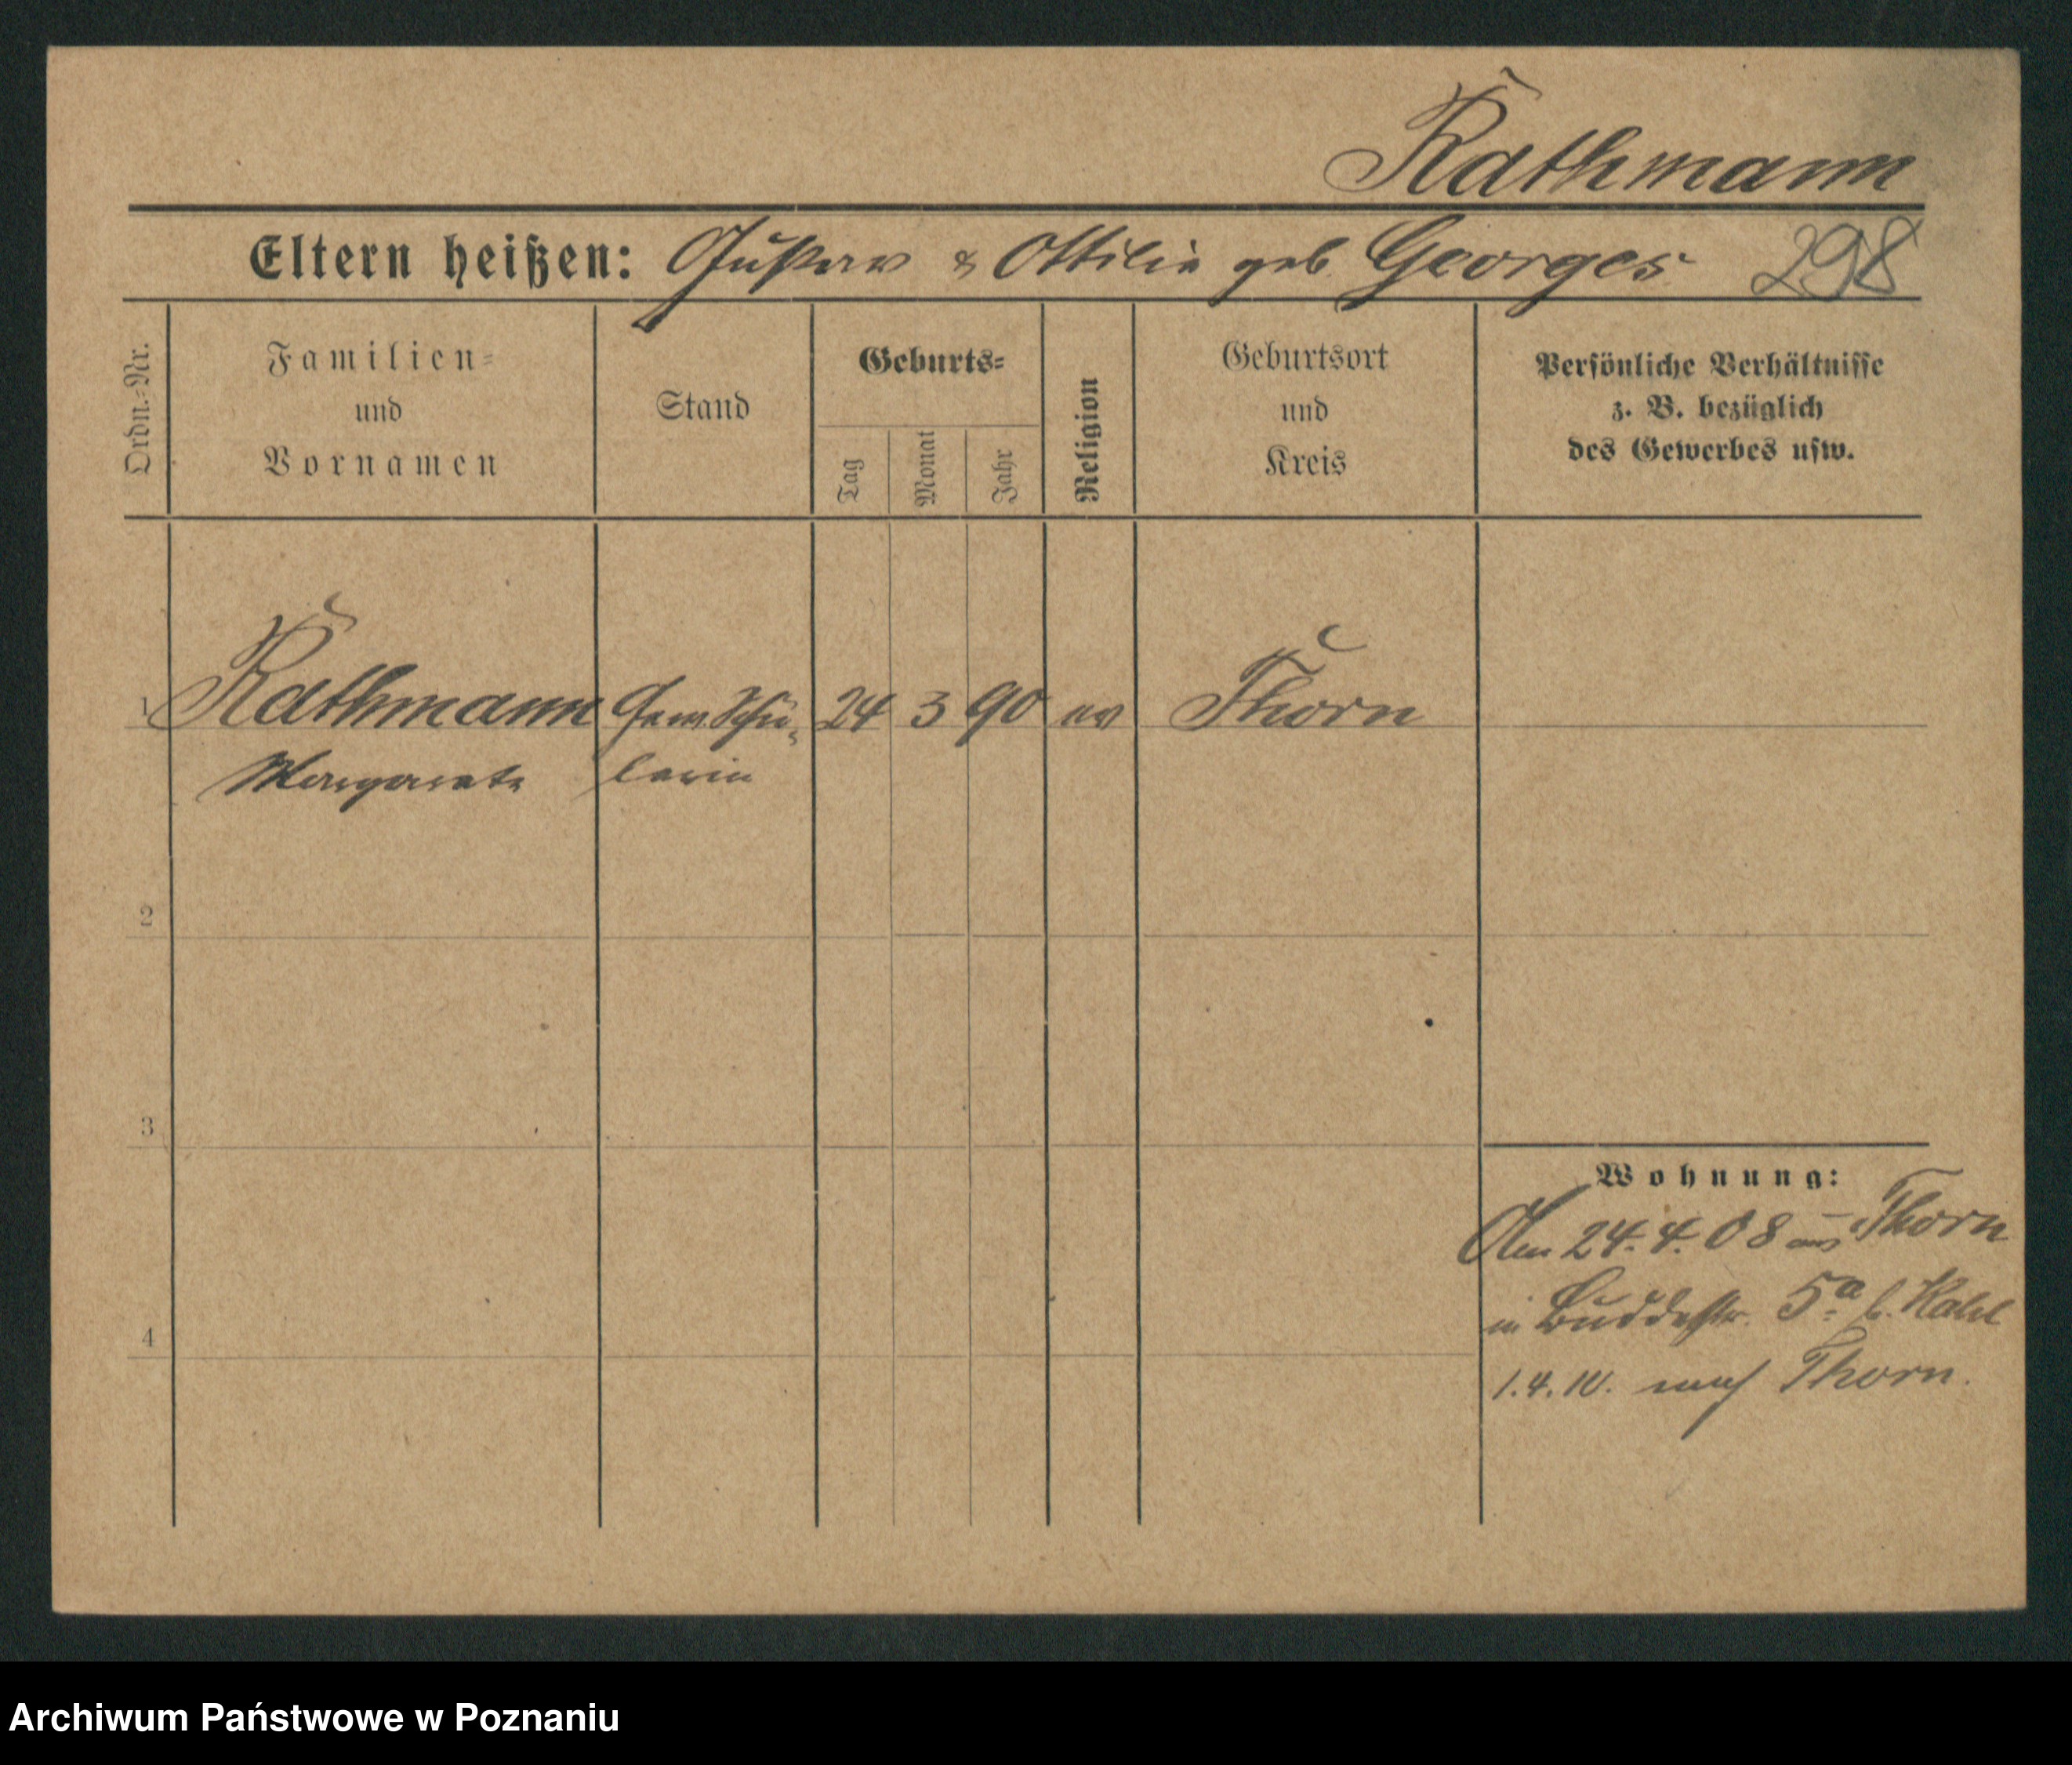 Rathmann
Eltern heißen: Gustav & Ottilie geb Georges 298
Ordn.-Nr.
Familien-
und
Vornamen
Stand
Geburts-
Tag
Monat
Jahr
Religion
Geburtsort
und
Kreis
Persönliche Verhältnisse
z. B. bezüglich
des Gewerbes usw.
1 Rathmann Sem. Schü- 24 3 90 ev Thorn
Margarete lerin
2
3
4
Wohnung:
Am 24.4.08 aus Thorn
in Buddestr. 5a b.
1.4.10. nach Thorn.
Archiwum Państwowe w Poznaniu